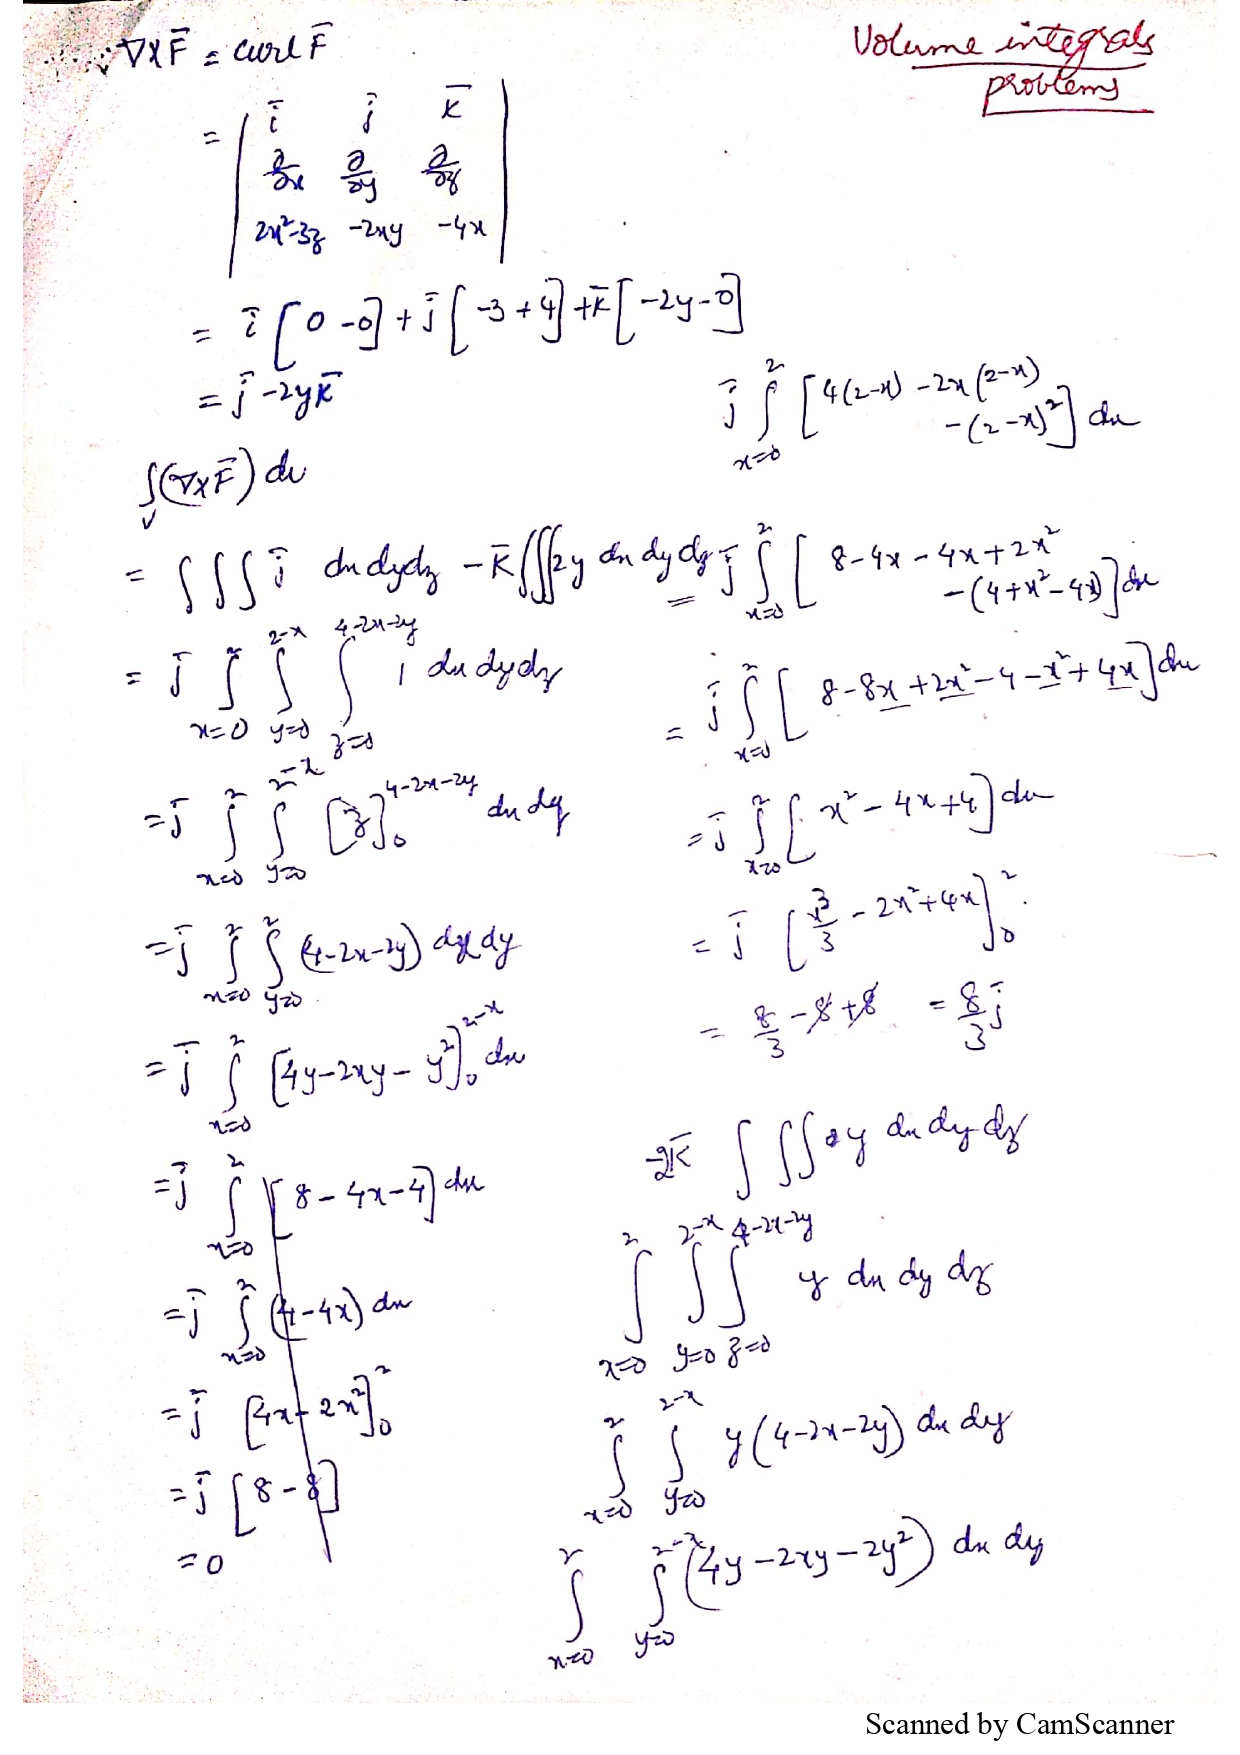 ∇×F̄ = curl F̄
Volume integrals
problems
= | ī j̄ k̄ |
| ∂/∂x ∂/∂y ∂/∂z |
| 2x²-3z -2xy -4x |
= ī [0-0] + j̄ [-3+4] + k̄ [-2y-0]
= j̄ -2yk̄
∫_v (∇×F̄) dv
= ∫∫∫ j̄ dxdydz - k̄ ∫∫∫ 2y dx dy dz
= j̄ ∫_{x=0}^{2} ∫_{y=0}^{2-x} ∫_{z=0}^{4-2x-2y} 1 dx dy dz
= j̄ ∫_{x=0}^{2} ∫_{y=0}^{2-x} [z]_0^{4-2x-2y} dx dy
= j̄ ∫_{x=0}^{2} ∫_{y=0}^{2} (4-2x-2y) dx dy
= j̄ ∫_{x=0}^{2} [4y-2xy-y²]_0^{2-x} dx
= j̄ ∫_{x=0}^{2} [8-4x-4] dx
= j̄ ∫_{x=0}^{2} (4-4x) dx
= j̄ [4x-2x²]_0^2
= j̄ [8-8]
= 0
j̄ ∫_{x=0}^{2} [4(2-x) -2x(2-x)
-(2-x)²] dx
= j̄ ∫_{x=0}^{2} [8-4x-4x+2x²
-(4+x²-4x)] dx
= j̄ ∫_{x=0}^{2} [8-8x+2x²-4-x²+4x] dx
= j̄ ∫_{x=0}^{2} [x²-4x+4] dx
= j̄ [x³/3 - 2x²+4x]_0^2
= 8/3 - 8 + 8 = 8/3 j̄
-2k̄ ∫∫∫ y dx dy dz
∫_{x=0}^{2} ∫_{y=0}^{2-x} ∫_{z=0}^{4-2x-2y} y dx dy dz
∫_{x=0}^{2} ∫_{y=0}^{2-x} y(4-2x-2y) dx dy
∫_{x=0}^{2} ∫_{y=0}^{2-x} (4y-2xy-2y²) dx dy
Scanned by CamScanner